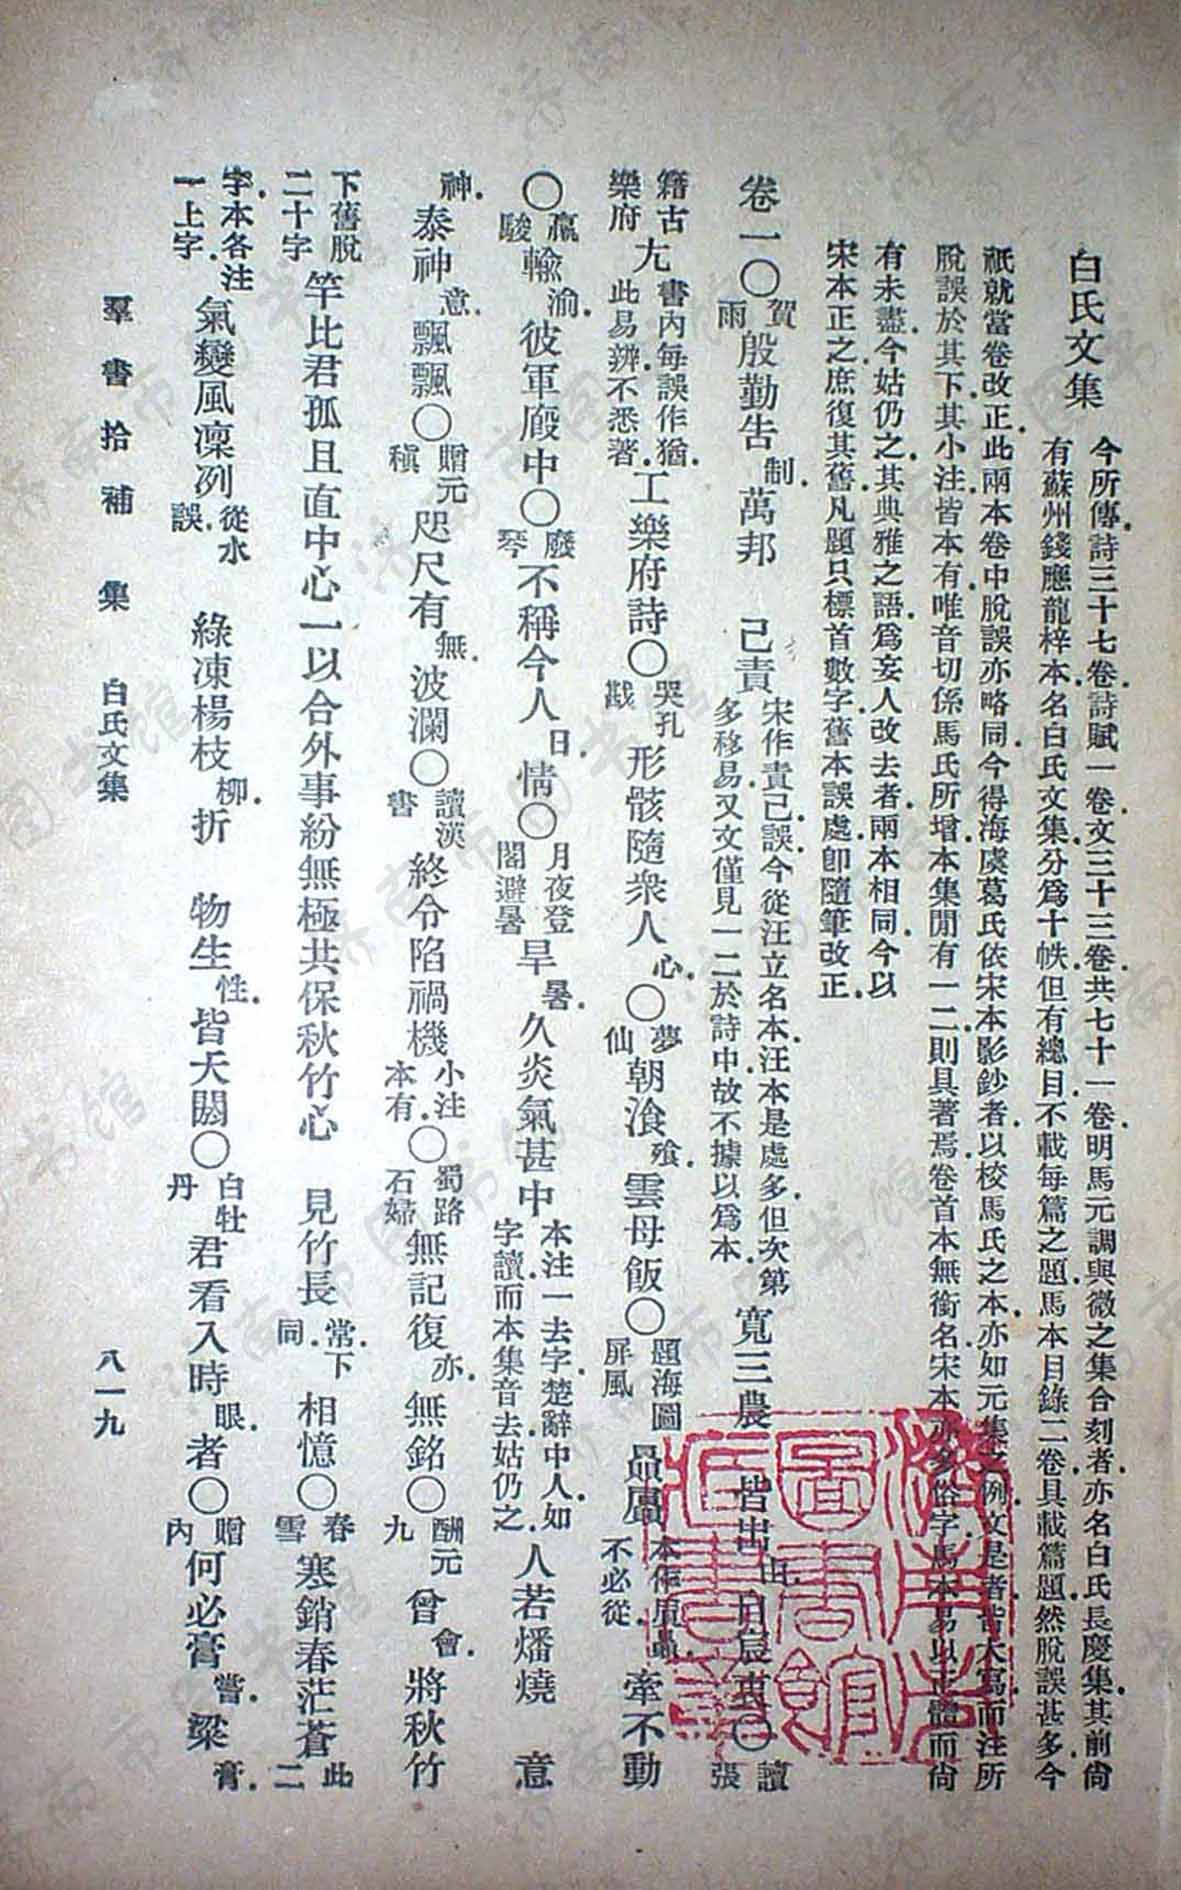 白氏文集
今所傳詩三十七卷詩賦一卷文三十三卷共七十一卷明馬元調與微之集合刻者亦名白氏長慶集其前尙
有蘇州錢應龍梓本名白氏文集分爲十帙但有總目不載每篇之題馬本目錄二卷具載篇題然脫誤甚多今
祇就當卷改正此兩本卷中脫誤亦略同今得海虞葛氏依宋本影鈔者以校馬氏之本亦如元集之例文是者皆大寫而注所
脫誤於其下其小注皆本有唯音切係馬氏所增本集閒有一二則具著焉卷首本無銜名宋本亦多俗字馬本易以正體而尙
有未盡今姑仍之其典雅之語爲妄人改去者兩本相同今以
宋本正之庶復其舊凡題只標首數字舊本誤處卽隨筆改正
卷一〇賀雨殷勤告制萬邦 己責宋作責己誤今從汪立名本汪本是處多但次第多移易又文僅見一二於詩中故不據以爲本 寬三農 皆出由 自宸衷〇讀張
籍古樂府尤書內每誤作猶此易辨不悉著工樂府詩〇哭孔戡形骸隨衆人心〇夢仙朝飡飧雲母飯〇題海圖屏風 贔屭本作屓贔不必從 牽不動
〇羸駿輸渝彼軍廄中〇廢琴不稱今人日情〇月夜登閣避暑旱暑久炎氣甚中本注一去字楚辭中人如字讀而本集音去姑仍之人若燔燒 意
神泰神意飄飄〇贈元稹咫尺有無波瀾〇讀漢書終令陷禍機小注本有〇蜀路石婦無記復亦無銘〇酬元九曾會將秋竹
竿比君孤且直中心一以合外事紛無極共保秋竹心下舊脫二十字 見竹長常下同相憶〇春雪寒銷春茫蒼此二
字本各注一上字氣變風凜冽從水誤 綠凍楊枝柳折 物生性皆夭閼〇白牡丹君看入時眼者〇贈內何必膏嘗粱膏
羣書拾補 集 白氏文集 八一九
濟南市圖書館藏書章